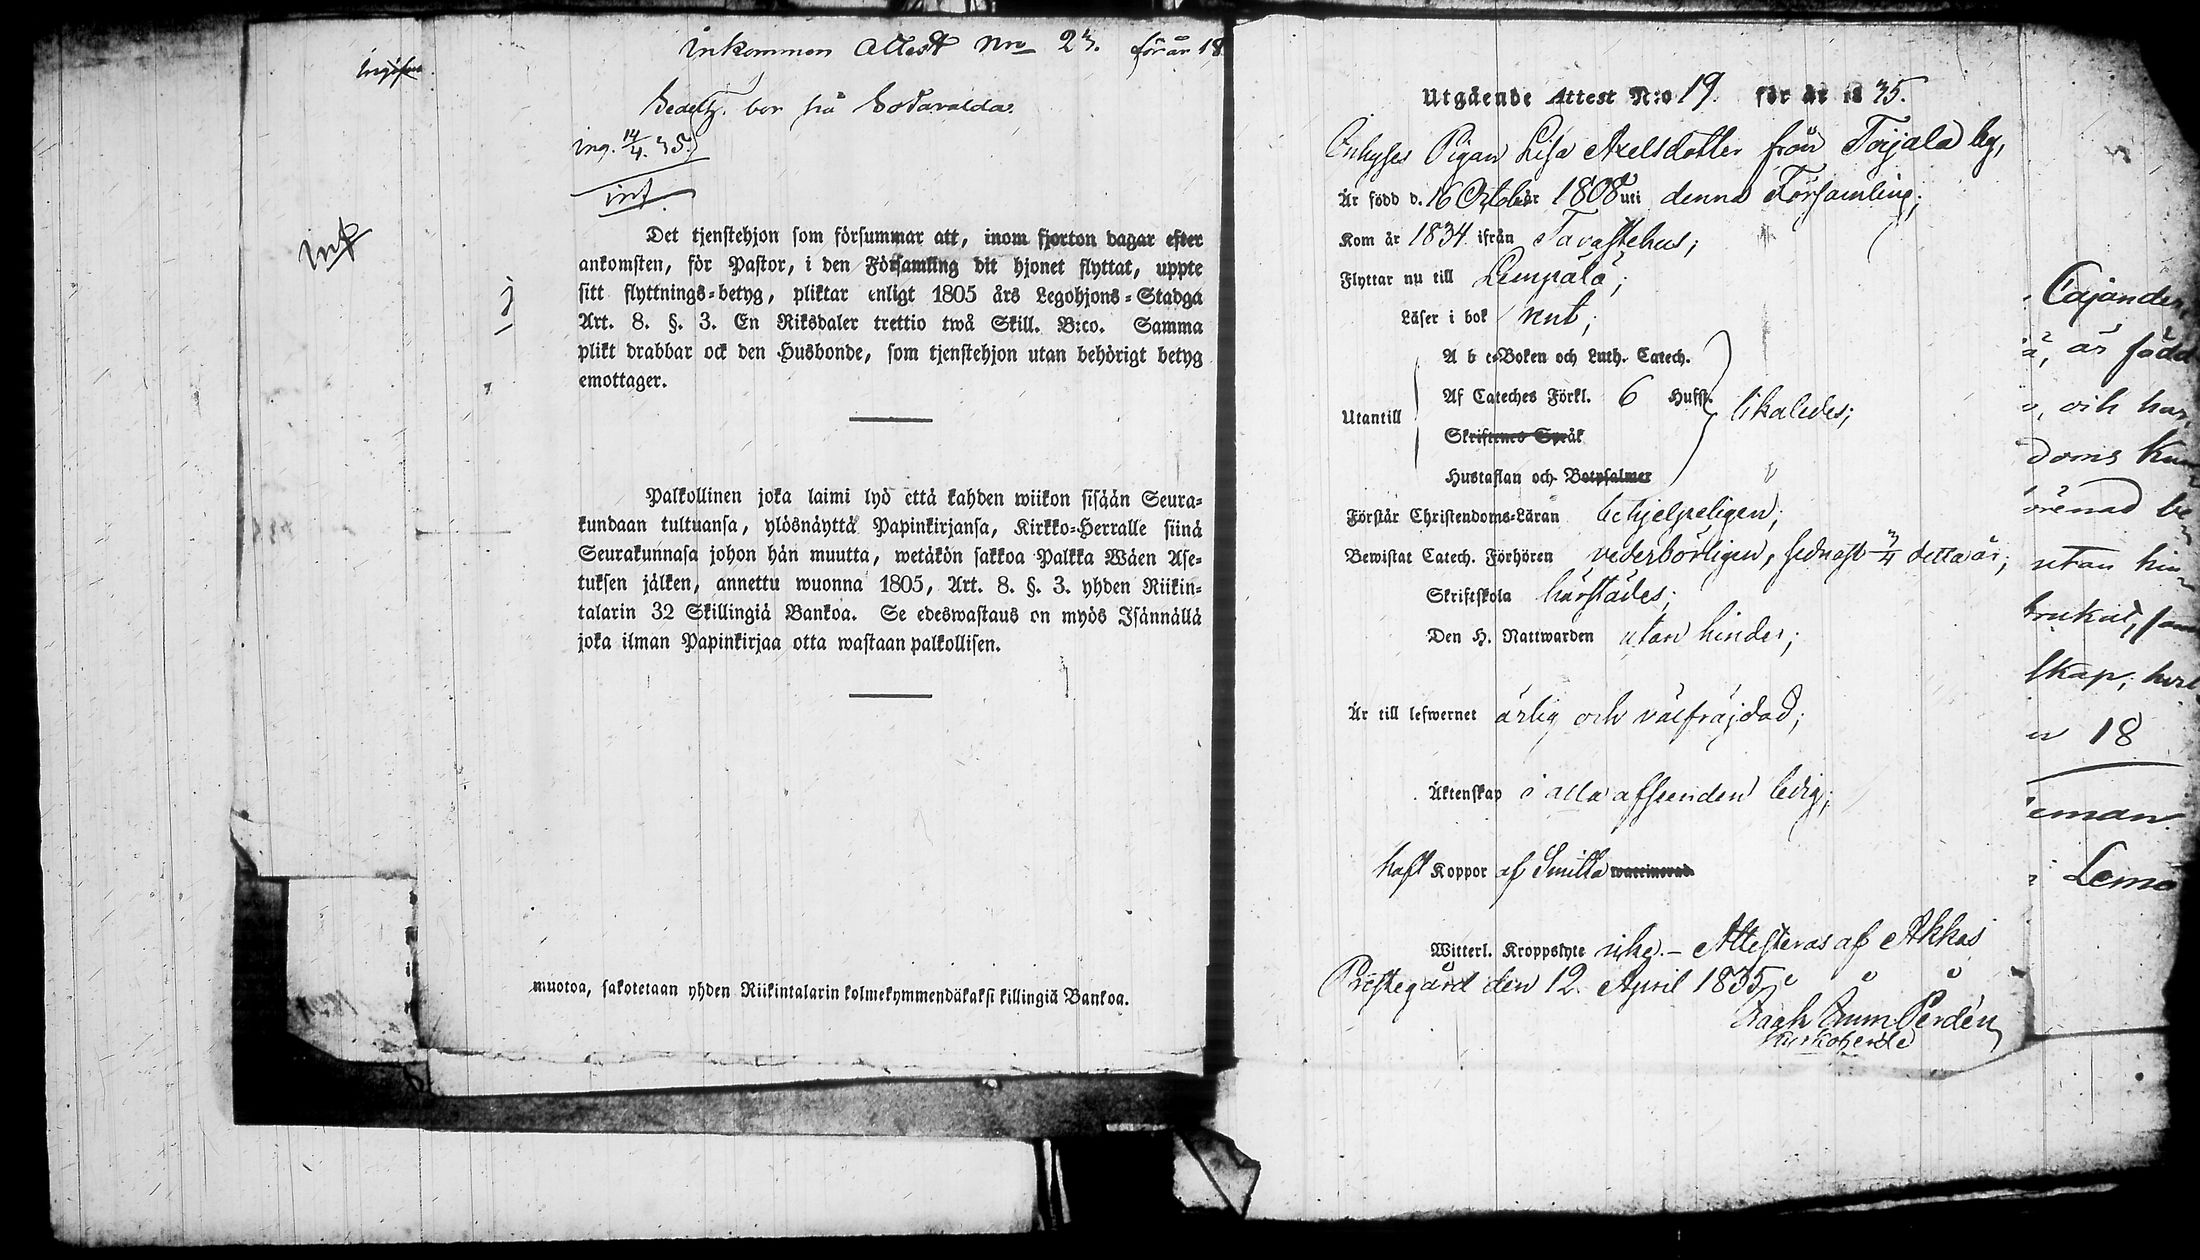 Inkommen Attest Nro 23. för år 18
bor på Sotavalda.
ing. 14/4. 35.
inf.
inf
Det tjenstehjon som försummar att, inom fjorton dagar efter
ankomsten, för Pastor, i den Församling dit hjonet flyttat, uppte
sitt flyttnings-betyg, pliktar enligt 1805 års Legohjons-Stadga
Art. 8. §. 3. En Riksdaler trettio twå Skill. B:co. Samma
plikt drabbar ock den Husbonde, som tjenstehjon utan behörigt betyg
emottager.
Palkollinen joka laimi lyö että kahden wiikon sisään Seura-
kundaan tultuansa, ylösnäyttä Papinkirjansa, Kirkko-Herralle siinä
Seurakunnasa johon hän muutta, wetäkön sakkoa Palkka Wäen Ase-
tuksen jälken, annettu wuonna 1805, Art. 8. §. 3. yhden Riikin-
talarin 32 Skillingiä Bankoa. Se edeswastaus on myös Isännällä
joka ilman Papinkirjaa otta wastaan palkollisen.
muotoa, sakotetaan yhden Riikintalarin kolmekymmendäkaksi killingiä Bankoa.
Utgående Attest N:o 19. för år 1835.
Inhyses Pigan Lisa Axelsdotter från Toijala by,
Är född d. 16 Octob. år 1808 uti denna Församling;
Kom år 1834 ifrån Tavastehus;
Flyttar nu till Lempälä;
Läser i bok nut;
A b c-Boken och Luth. Catech.
Af Cateches Förkl. 6 Hufst.
Utantill likaledes;
Skriftenes Språk
Hustaflan och Botpsalmer
Förstår Christendoms-Läran behjelpeligen;
Bewistat Catech. Förhören vederbörligen, sednast 3/4 detta år;
Skriftskola härstädes;
Den H. Nattwarden utan hinder;
Är till lefwernet ärlig och välfräjdad;
Äktenskap i alla afseenden ledig;
haft Koppor af Smitta waccinerad
Witterl. Kroppslyte icke. – Attesteras af Akkas
Prestegård den 12. April 1835.
Kyrkoherde
Cajander,
är född
och har
doms
utan hin-
18
Lemo